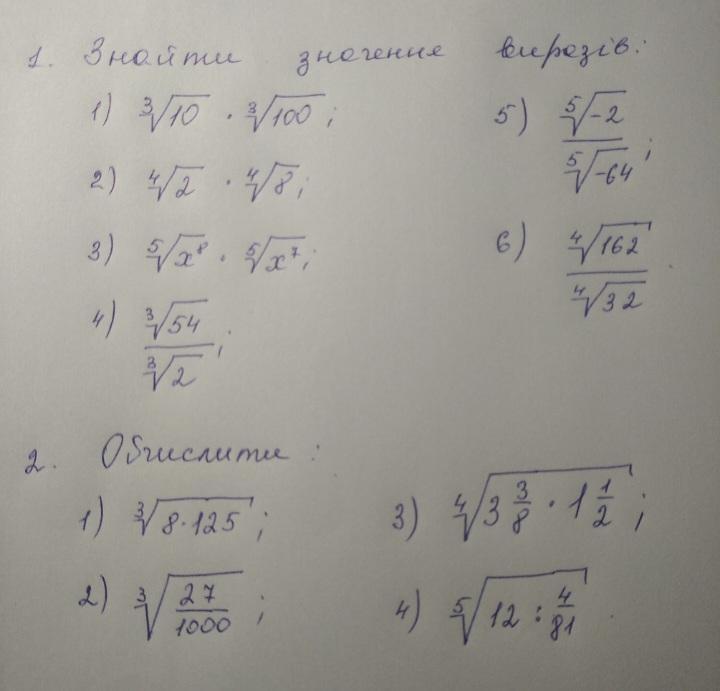 1. Знайти значення виразів:
1) ∛10 · ∛100;
2) ∜2 · ∜8;
3) ⁵√x⁸ · ⁵√x⁷;
4) ∛54 / ∛2;
5) ⁵√-2 / ⁵√-64;
6) ∜162 / ∜32.
2. Обчислити:
1) ∛(8·125);
2) ∛(27/1000);
3) ∜(3 3/8 · 1 1/2);
4) ⁵√(12 : 4/81).